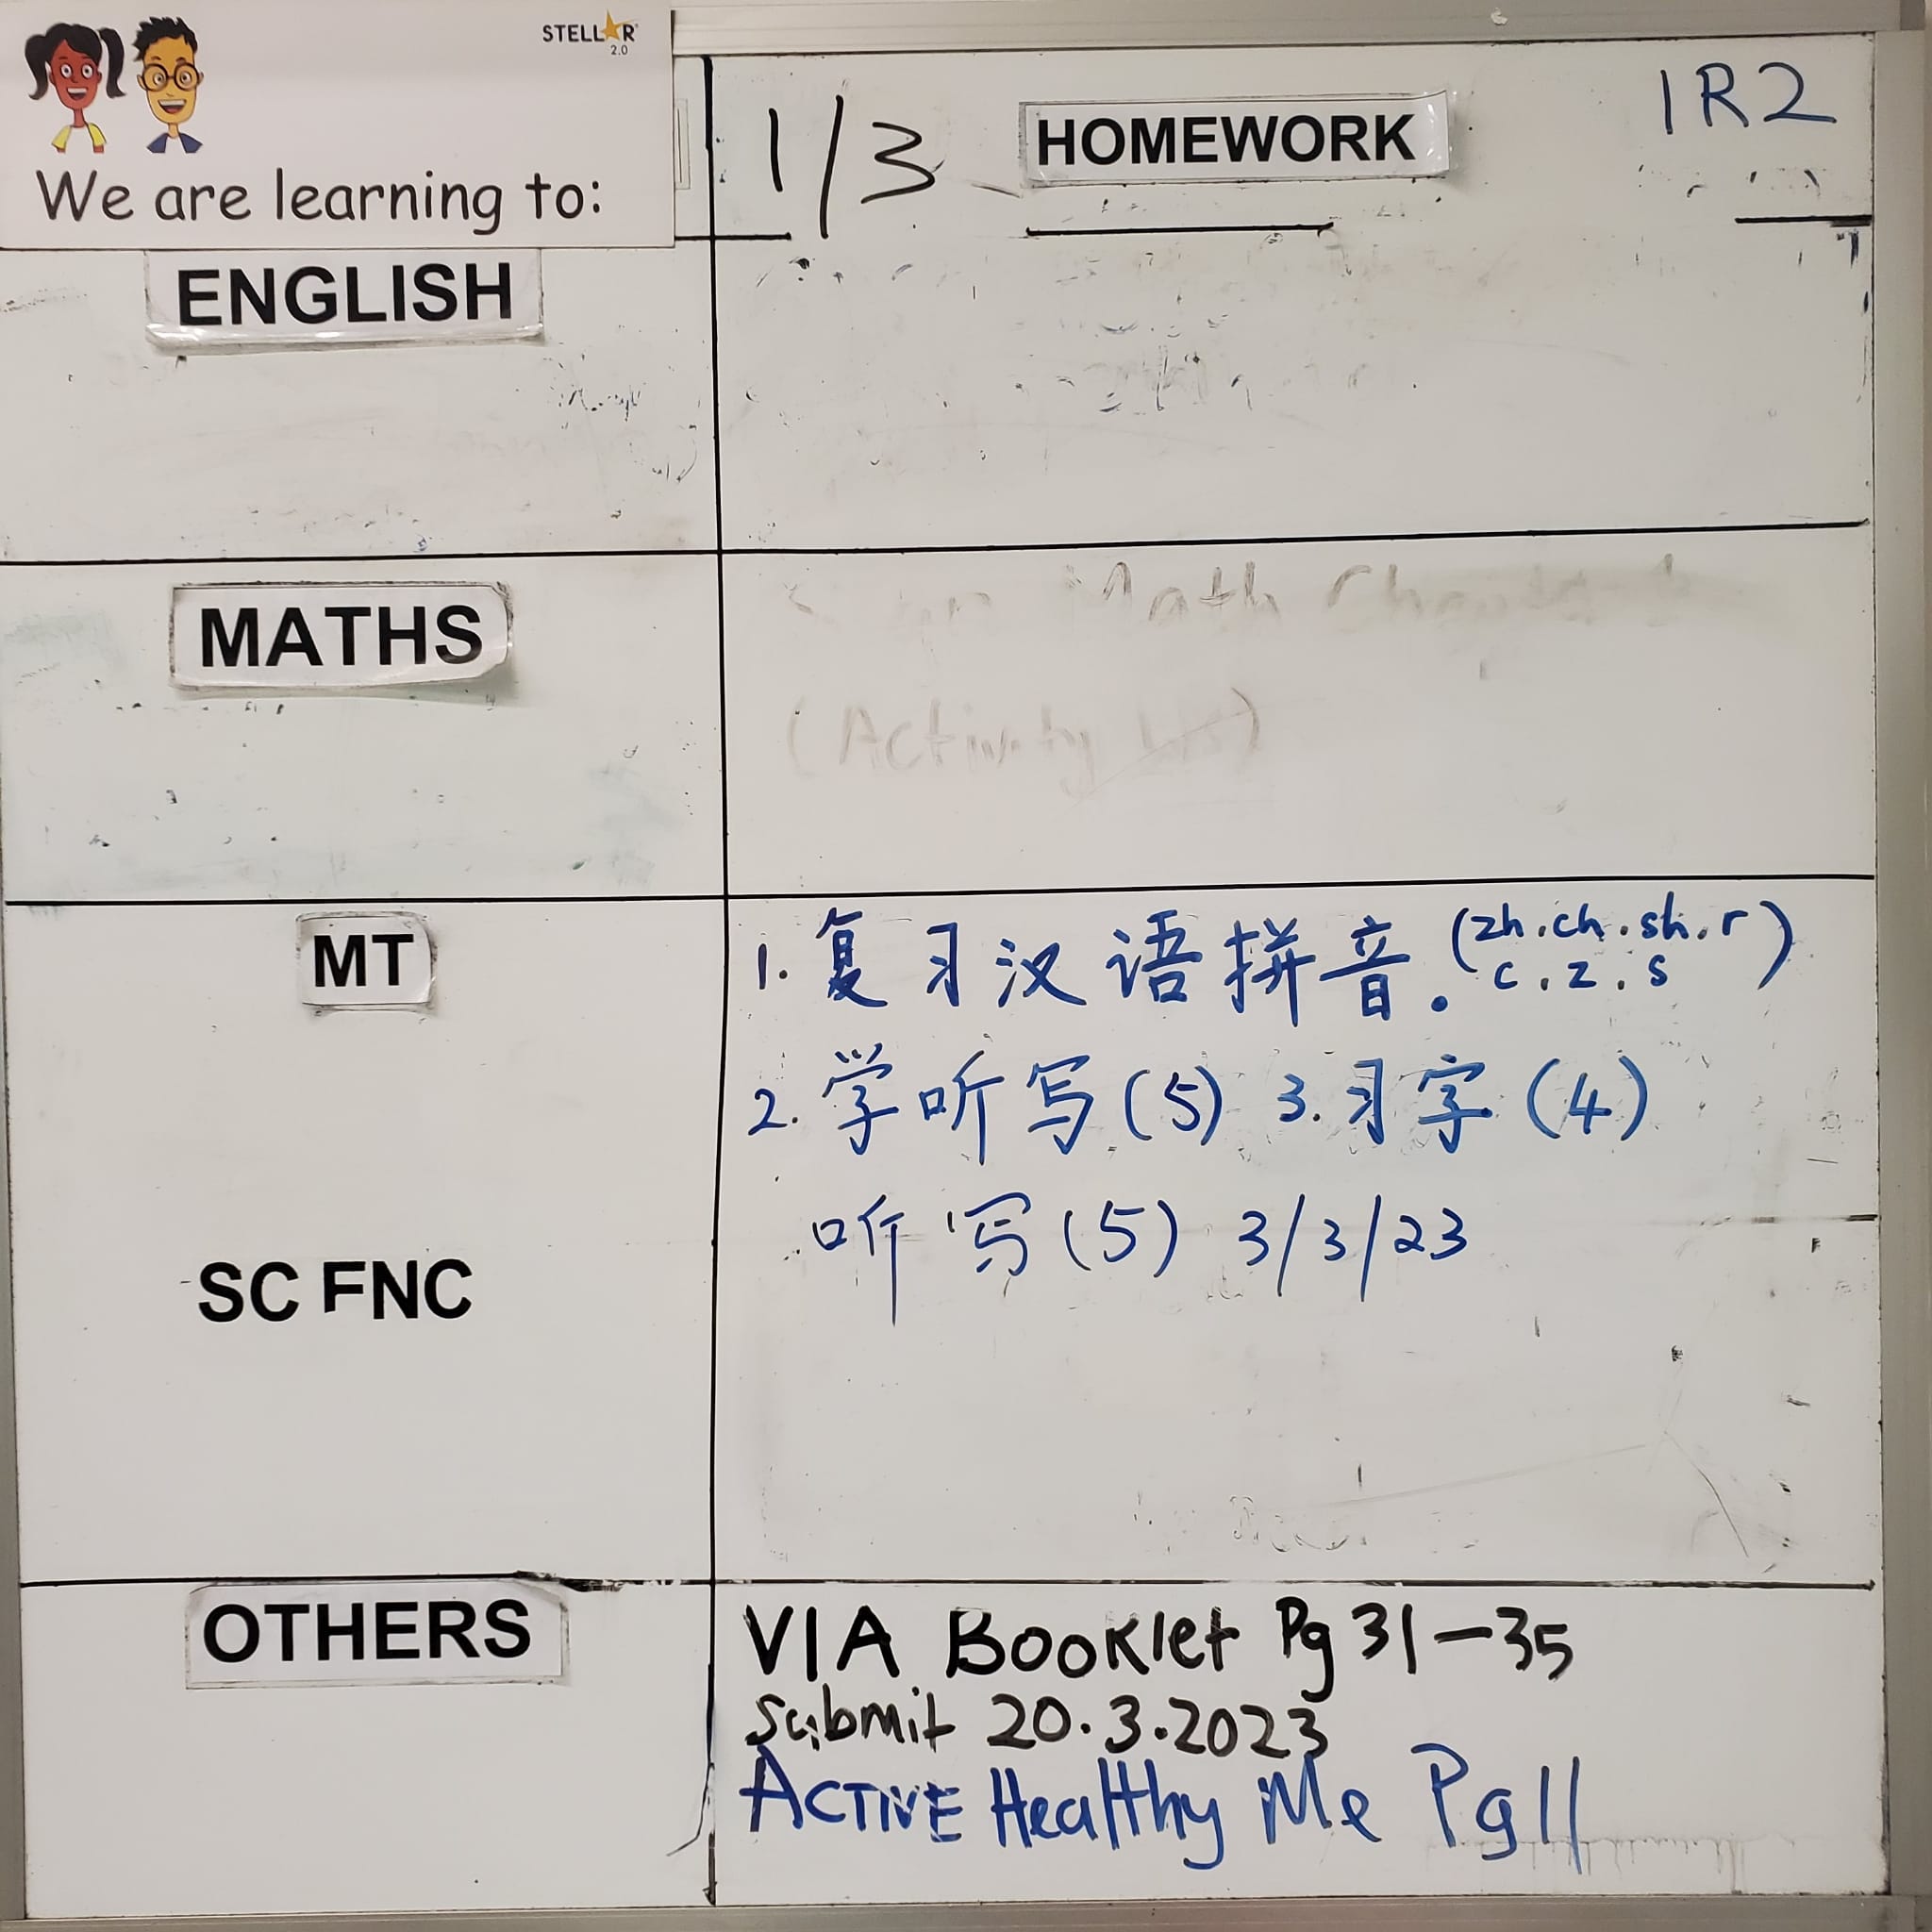 STELLAR
2.0
We are learning to:
1/3 HOMEWORK 1R2
ENGLISH
MATHS
Math
(Activity
MT
1. 复习汉语拼音. (zh.ch.sh.r
c.z.s)
2. 学听写(5) 3. 习字(4)
听写(5) 3/3/23
SC FNC
OTHERS
VIA Booklet Pg 31-35
submit 20.3.2023
ACTIVE Healthy Me Pg 11